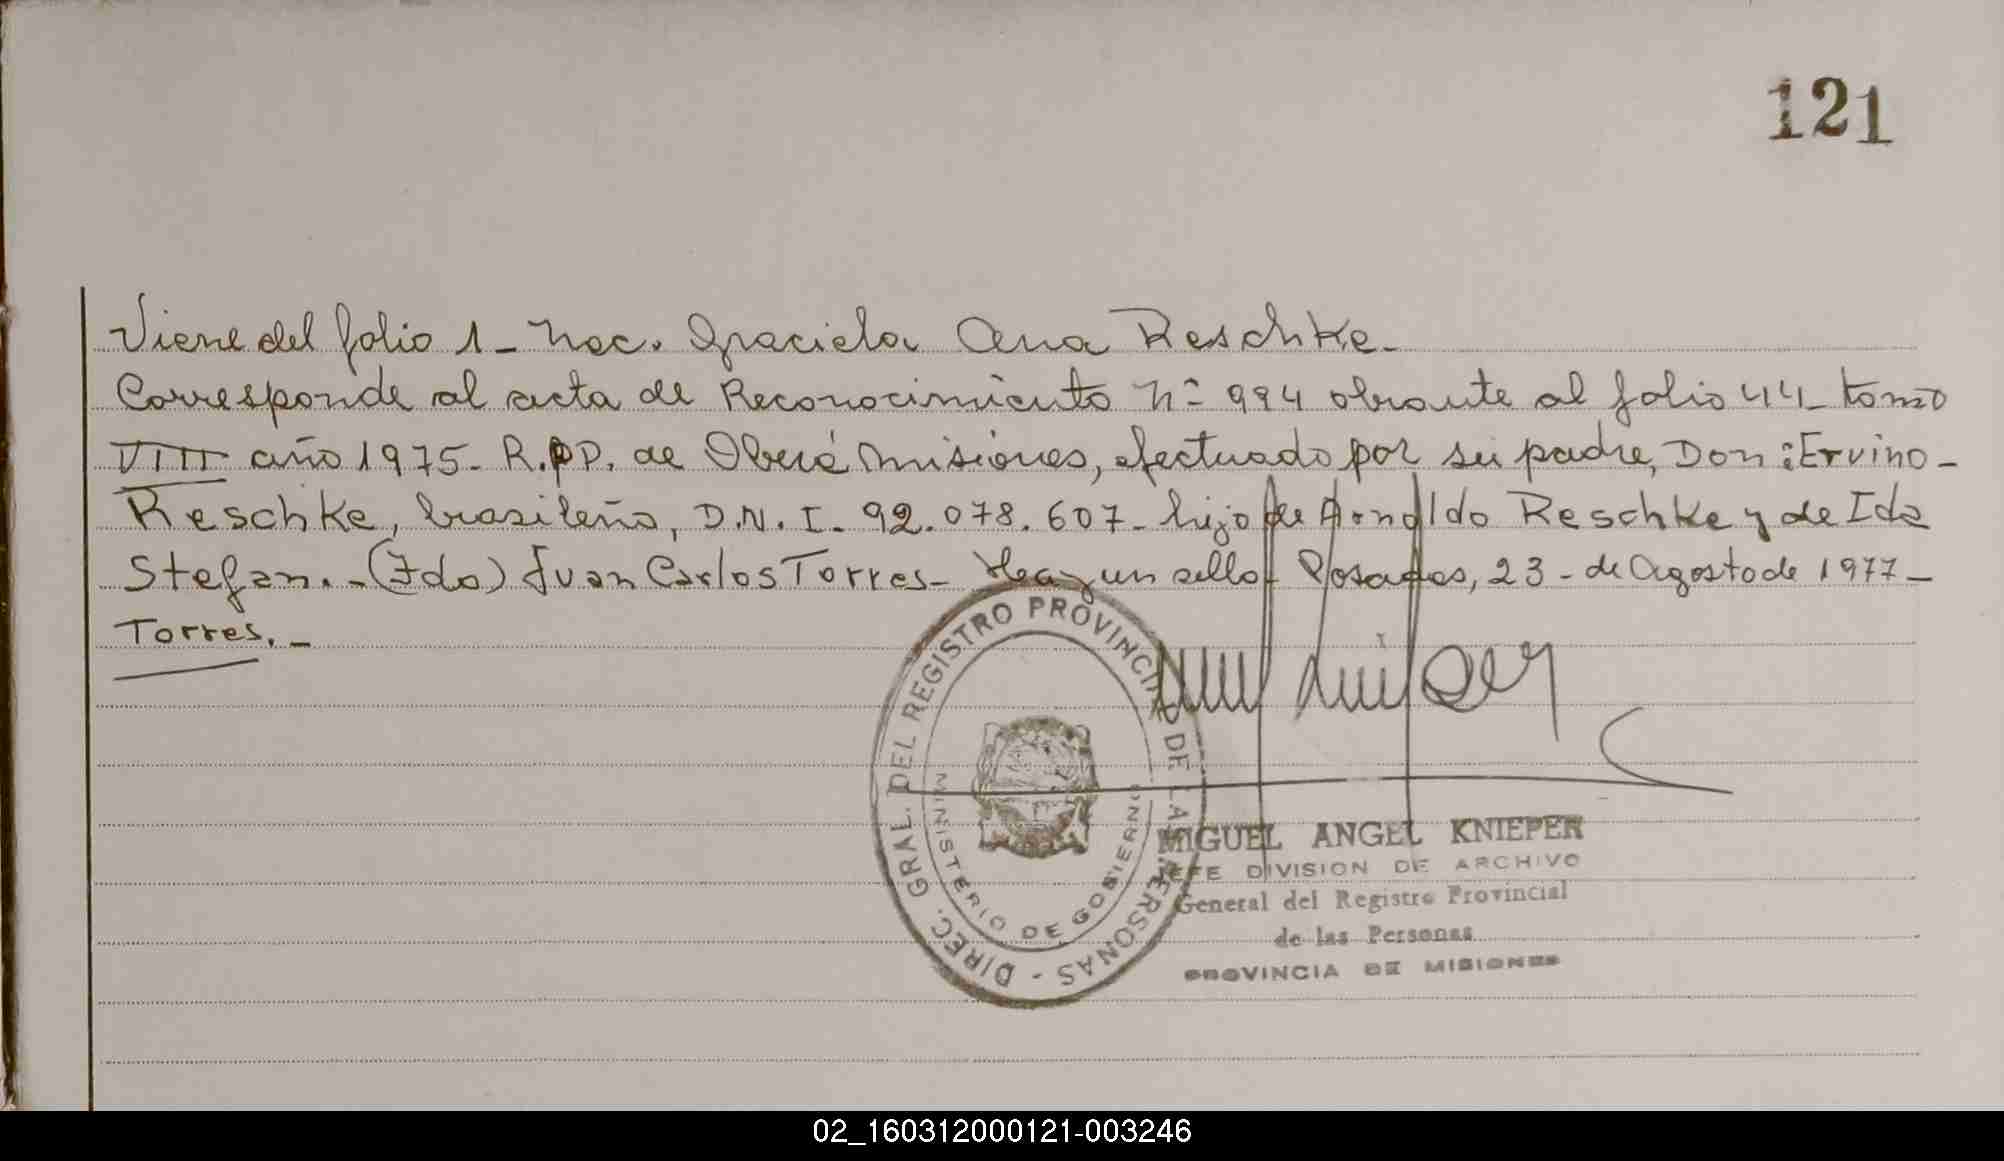 121
Viene del folio 1_ Nac. Graciela Ana Reschke_
Corresponde al acta de Reconocimiento Nº 994 obrante al folio 44_ tomo
VIII año 1975_ R.P.P. de Oberá Misiones, efectuado por su padre, Don: Ervino_
Reschke, brasileño, D.N.I_ 92.078.607_ hijo de Arnoldo Reschke y de Ida
Stefan._(Fdo) Juan Carlos Torres_ Hay un sello_ Posadas, 23_ de Agosto de 1977_
Torres._
DIREC. GRAL. DEL REGISTRO PROVINCIAL DE LAS PERSONAS -
MINISTERIO DE GOBIERNO
MIGUEL ANGEL KNIEPER
JEFE DIVISION DE ARCHIVO
General del Registro Provincial
de las Personas
PROVINCIA DE MISIONES
02_160312000121-003246